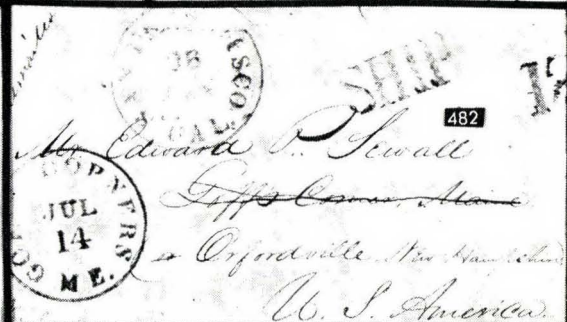 SHIP
482
Mr Edward P. Sewall
Goffs Corner, Maine
Orfordville New Hampshire
U. S. America
CORNERS
JUL
14
ME.
CAL.